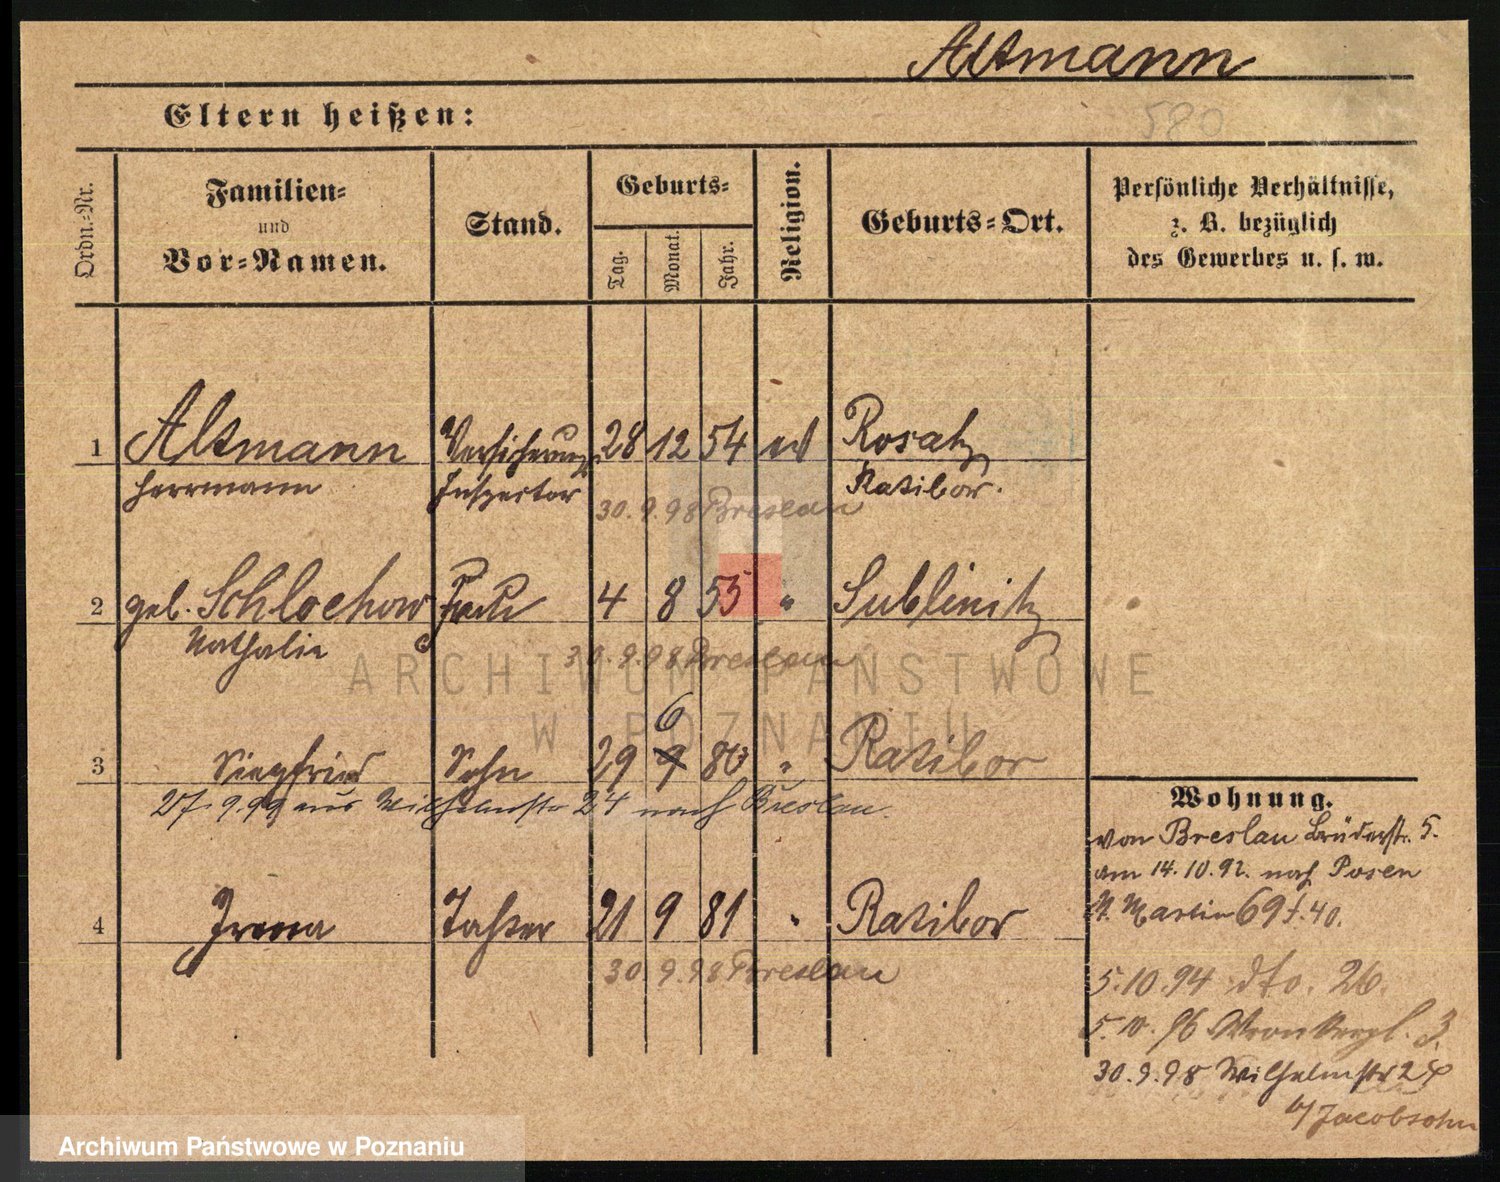 Altmann
580
Eltern heißen:
Ordn.=Nr.
Familien=
und
Vor=Namen.
Stand.
Geburts=
Tag.
Monat.
Jahr.
Religion.
Geburts=Ort.
Persönliche Verhältnisse,
z. B. bezüglich
des Gewerbes u. s. w.
1 Altmann Versicherungs 28 12 54 Rosatz
Herrmann Inspector Ratibor.
30.9.98 Breslau
2 geb. Schlochow Frau 4 8 55 " Lublinitz
Nathalie
30.9.98 Breslau
6
3 Siegfried Sohn 29 9 80 " Ratibor
27.9.99 aus Wilhelmstr 24 nach Breslau.
4 Irena Tochter 21 9 81 " Ratibor
30.9.98 Breslau
Wohnung.
von Breslau Brüderstr. 5.
am 14.10.92. nach Posen
St. Martin 69 f. 40.
5.10.94 dto. 26.
5.10.96 Wronkerpl. 3.
30.9.98 Wilhelmstr 24
b/ Jacobsohn
ARCHIWUM PAŃSTWOWE
W POZNANIU
Archiwum Państwowe w Poznaniu